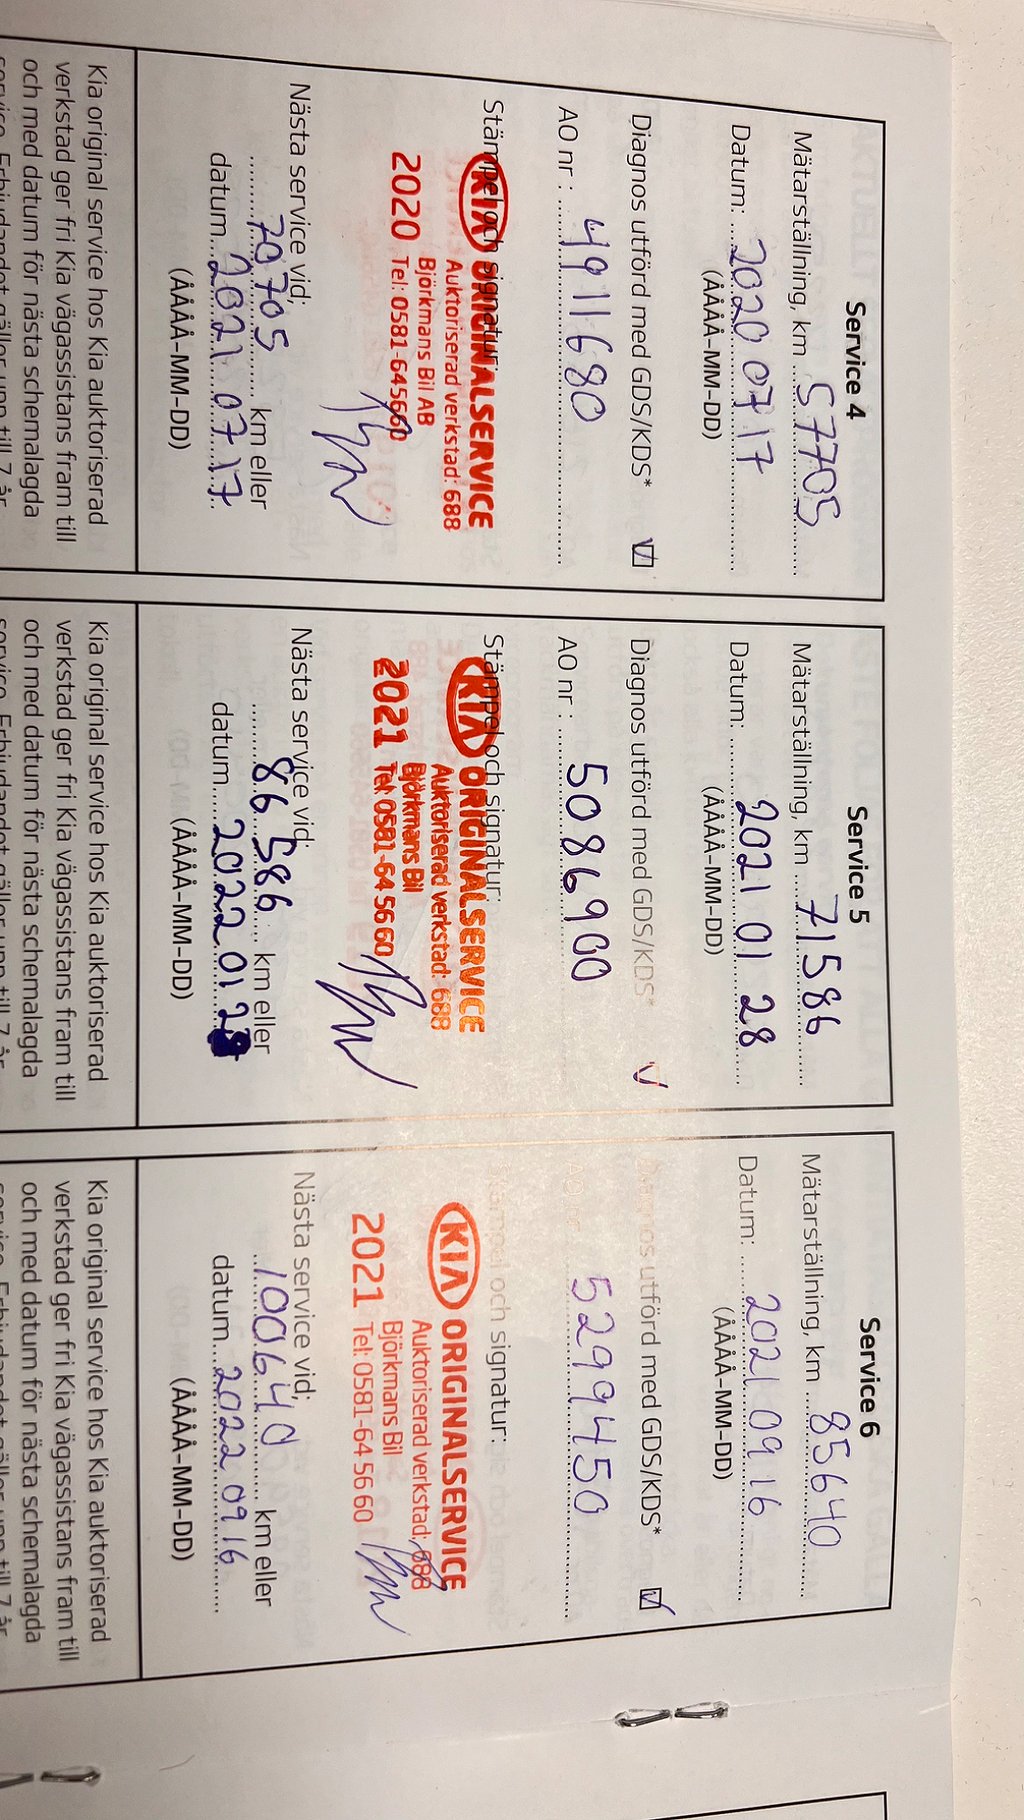 Service 4
Mätarställning, km 57705
Datum: 2020 07 17
(ÅÅÅÅ-MM-DD)
Diagnos utförd med GDS/KDS*
AO nr : 4911680
Stämpel och signatur:
KIA ORIGINALSERVICE
Auktoriserad verkstad: 688
Björkmans Bil AB
2020 Tel: 0581-645660
Nästa service vid;
70705 km eller
datum 2021 07 17
(ÅÅÅÅ-MM-DD)
Kia original service hos Kia auktoriserad
verkstad ger fri Kia vägassistans fram till
och med datum för nästa schemalagda
service. Erbjudandet gäller upp till 7 år
Service 5
Mätarställning, km 71586
Datum: 2021 01 28
(ÅÅÅÅ-MM-DD)
Diagnos utförd med GDS/KDS*
AO nr : 5086900
Stämpel och signatur:
KIA ORIGINALSERVICE
Auktoriserad verkstad: 688
Björkmans Bil
2021 Tel: 0581-64 56 60
Nästa service vid;
86 586 km eller
datum 2022 01 28
(ÅÅÅÅ-MM-DD)
Kia original service hos Kia auktoriserad
verkstad ger fri Kia vägassistans fram till
och med datum för nästa schemalagda
service. Erbjudandet gäller upp till 7 år
Service 6
Mätarställning, km 85640
Datum: 2021 09 16
(ÅÅÅÅ-MM-DD)
Diagnos utförd med GDS/KDS*
AO nr : 5299450
Stämpel och signatur:
KIA ORIGINALSERVICE
Auktoriserad verkstad: 688
Björkmans Bil
2021 Tel: 0581-64 56 60
Nästa service vid;
100640 km eller
datum 2022 09 16
(ÅÅÅÅ-MM-DD)
Kia original service hos Kia auktoriserad
verkstad ger fri Kia vägassistans fram till
och med datum för nästa schemalagda
service. Erbjudandet gäller upp till 7 år